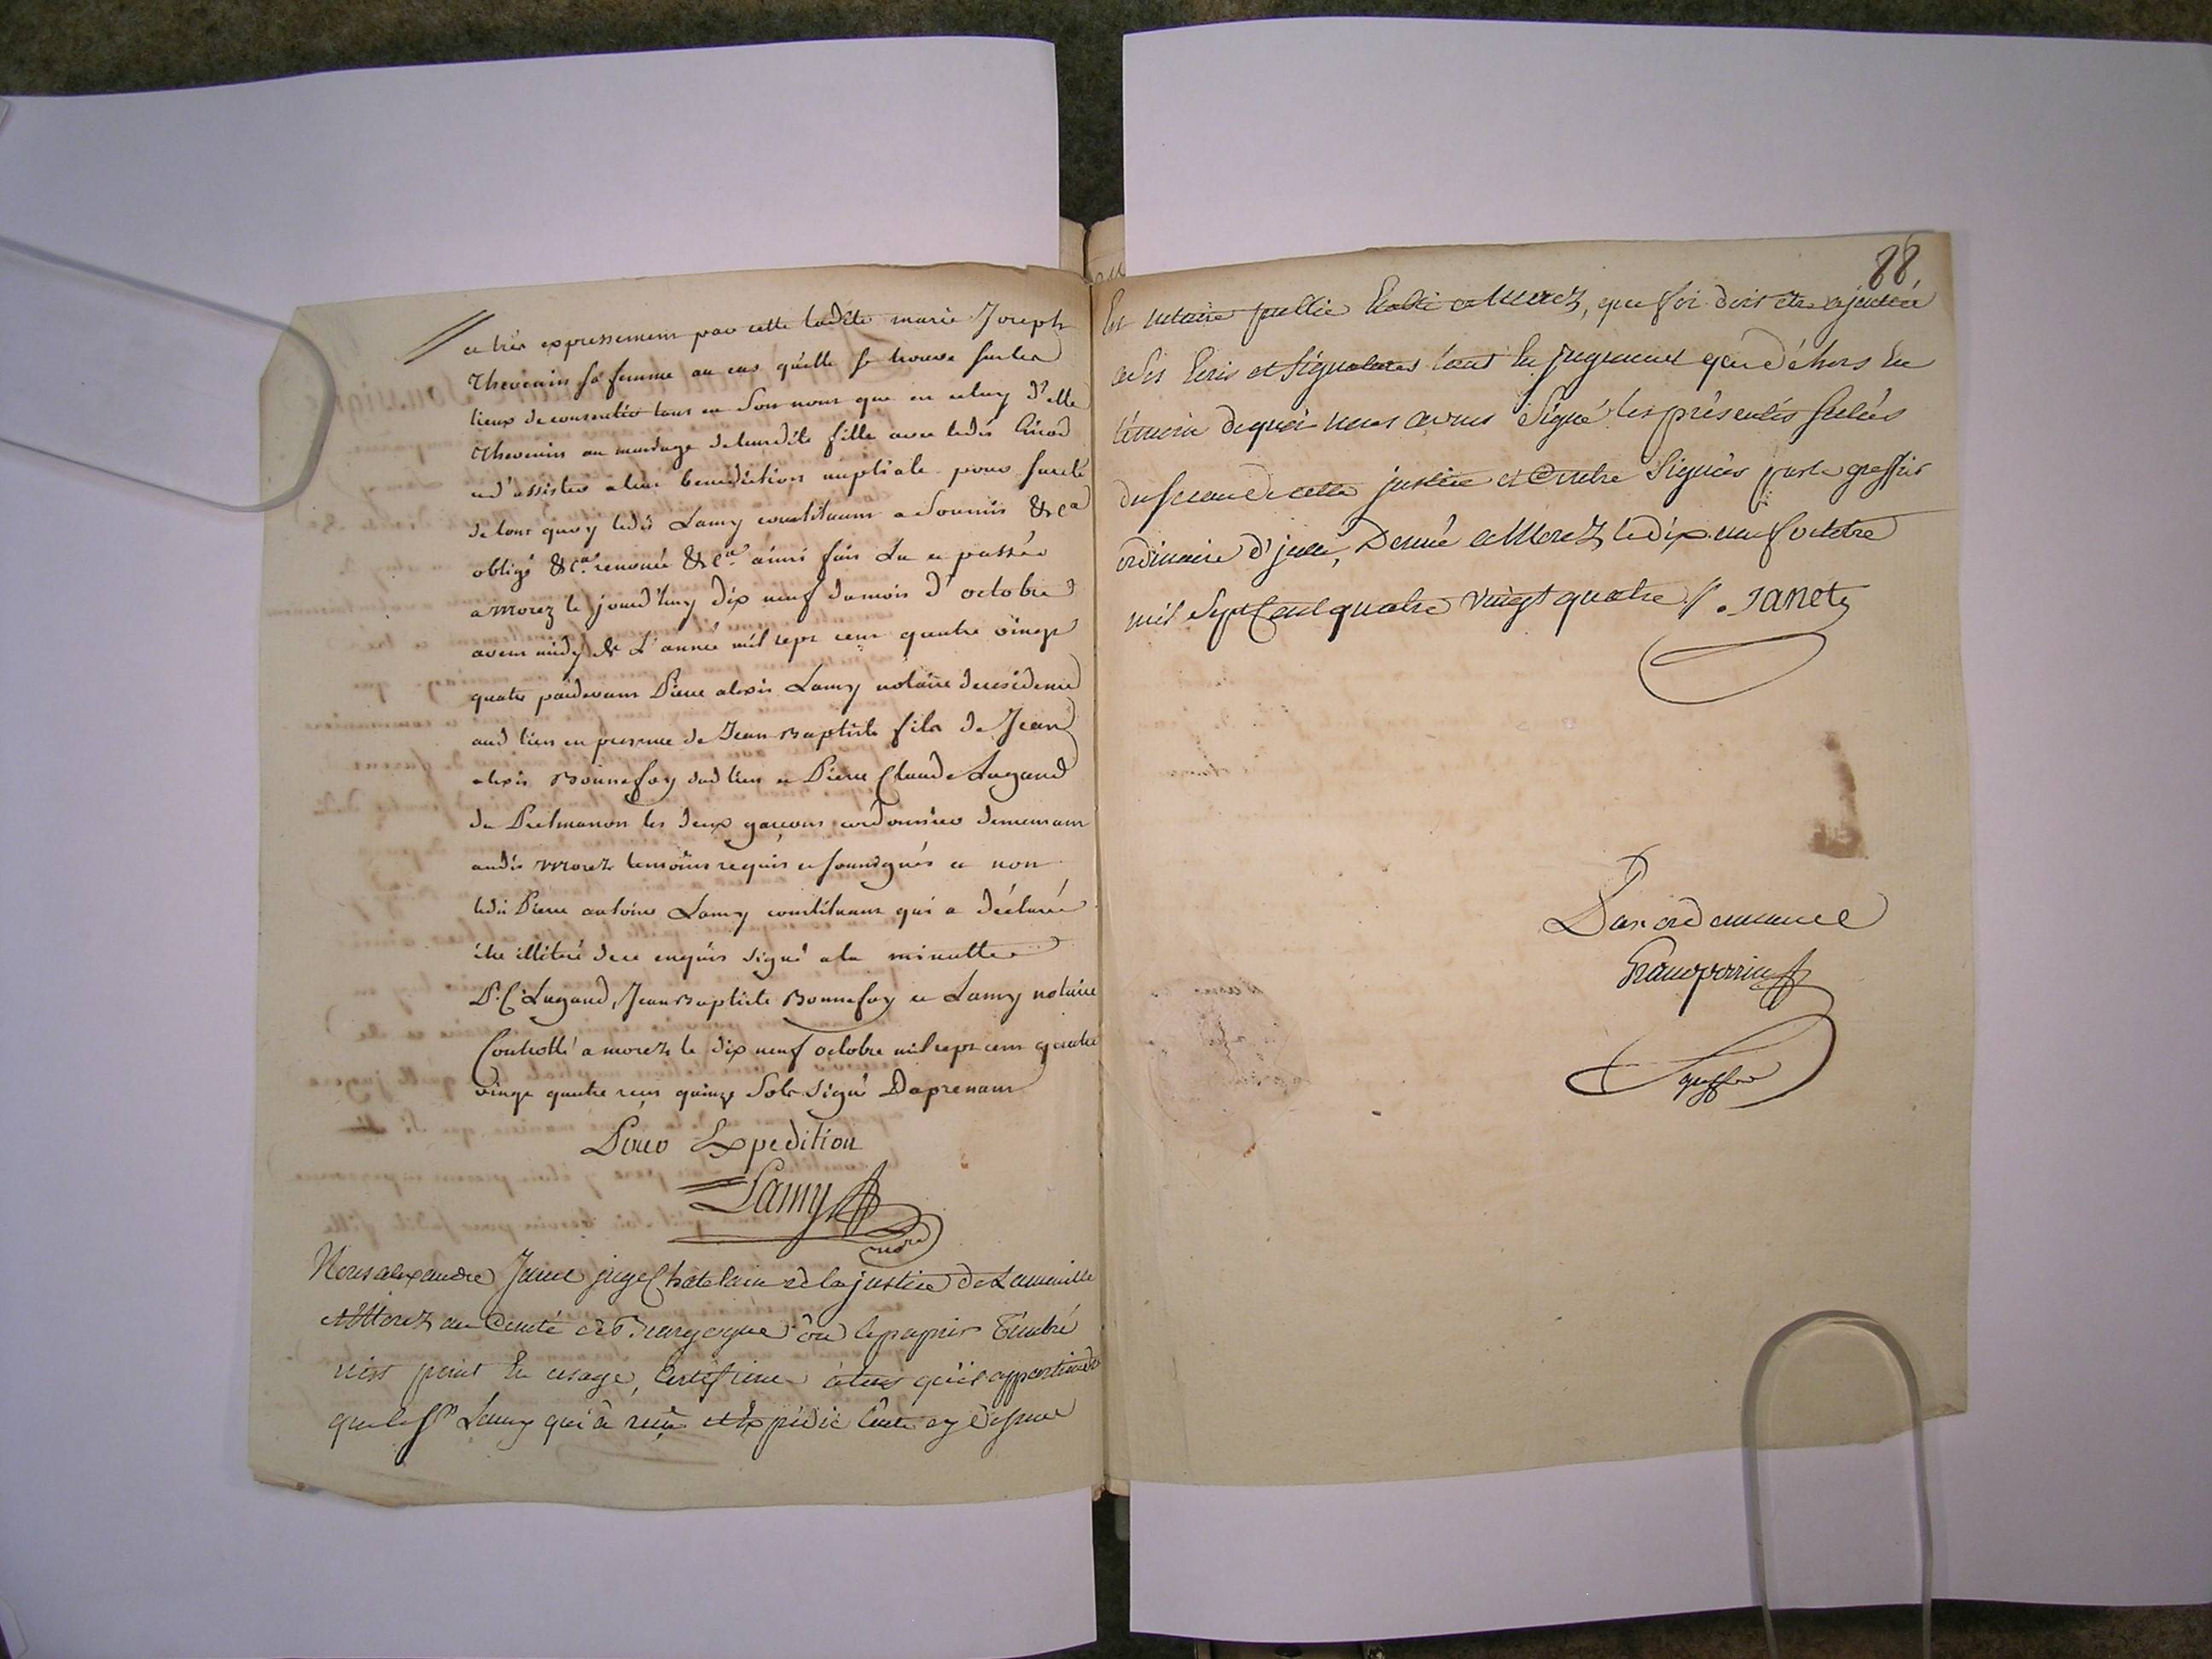 et très expressement par cette ladite marie Joseph
Thevenin sa femme au cas qu'elle se trouve sur les
lieux de consentir tant en son nom que en celuy d'elle
Thevenin au mariage de leurdite fille avec ledit Girod
et d'assister a leur benediction nuptiale pour sureté
de tout quoy ledit Lamy constituant a Soumis &ca
obligé &ca renoncé &ca ainsi fait Lu et passée
a morez le jourd'huy dix neuf du mois d'octobre
avant midy de L'année mil sept cent quatre vingt
quatre pardevant Pierre alexis Lamy notaire de residence
aud lieu en presence de Jean Baptiste fils de Jean
alexis Bonnefoy dud lieu et Pierre Claude Lugand
de Prelmanon les deux garçons cordonniers demeurant
audit morez temoins requis et soussignés et non
ledit Pierre antoine Lamy constituant qui a déclaré
être illitéré de ce enquis signé a la minutte
P. C. Lugand, Jean Baptiste Bonnefoy et Lamy notaire
Controllé a morez le dix neuf octobre mil sept cent quatre
vingt quatre reçu quinze Sols signé Daprenant
Pour Expedition
Lamy
nore
Nous alexandre juge Chatelain de la justice de
et Morez au Comté de Bourgogne où le papier Timbré
n'est point En usage, Certifions à tous qu'il appartiendra
que le Sr Lamy qui à reçu et Expédié l'acte cy dessus
88
Est notaire public Etabli a Morez, que foi doit etre ajoutée
a ses Ecris et Signatures tant En jugement que déhors En
témoin dequoi nous avons Signé les présentes scelées
du sceau de cette justice et Contre Signées par le greffier
ordinaire d'jcelle, Donné a Morez le dix neuf octobre
mil Sept Cent quatre vingt quatre //. Janet
Par ordonnance
greffier